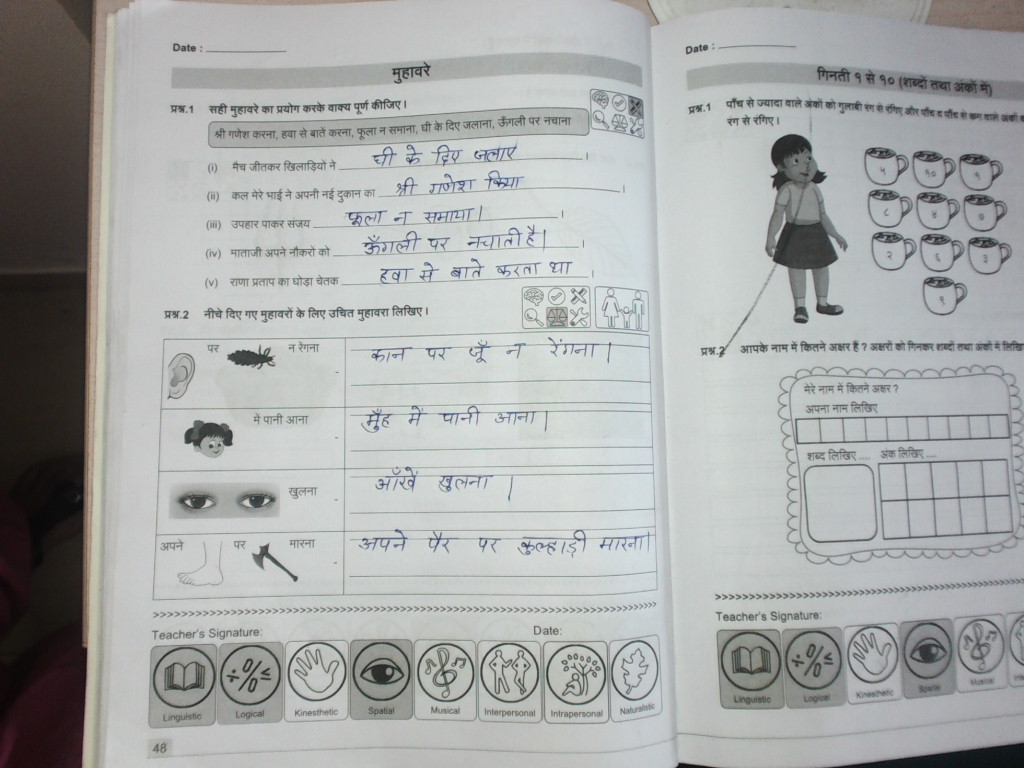 Date : ____________
मुहावरे
प्रश्न.1 सही मुहावरे का प्रयोग करके वाक्य पूर्ण कीजिए ।
श्री गणेश करना, हवा से बातें करना, फूला न समाना, घी के दिए जलाना, ऊँगली पर नचाना
(i) मैच जीतकर खिलाड़ियो ने घी के दिए जलाए ।
(ii) कल मेरे भाई ने अपनी नई दुकान का श्री गणेश किया ।
(iii) उपहार पाकर संजय फूला न समाया । ।
(iv) माताजी अपने नौकरों को ऊँगली पर नचाती है । ।
(v) राणा प्रताप का घोड़ा चेतक हवा से बाते करता था ।
प्रश्न.2 नीचे दिए गए मुहावरों के लिए उचित मुहावरा लिखिए ।
पर न रेगना - कान पर जूँ न रेंगना ।
में पानी आना - मुँह में पानी आना ।
खुलना - आँखें खुलना ।
अपने पर मारना - अपने पैर पर कुल्हाड़ी मारना ।
Teacher's Signature: Date:
Linguistic Logical Kinesthetic Spatial Musical Interpersonal Intrapersonal Naturalistic
48
Date : ____________
गिनती १ से १० (शब्दों तथा अंकों में)
प्रश्न.1 पाँच से ज्यादा वाले अंकों को गुलाबी रंग से रंगिए और पाँच व पाँच से कम वाले अंकों
रंग से रंगिए ।
५ १० ९
८ ४ ७
२ ६ ३
१
प्रश्न.2 आपके नाम में कितने अक्षर हैं ? अक्षरों को गिनकर शब्दों तथा अंकों में
मेरे नाम में कितने अक्षर ?
अपना नाम लिखिए
शब्द लिखिए .... अंक लिखिए ....
Teacher's Signature:
Linguistic Logical Kinesthetic Spatial Musical